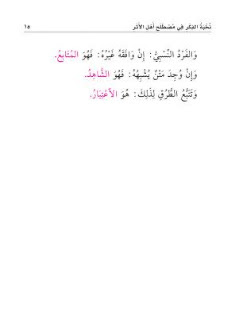 نُخْبَةُ الفِكَرِ فِي مُصْطَلَحِ أَهْلِ الأَثَرِ ١٥
وَالفَرْدُ النِّسْبِيُّ: إِنْ وَافَقَهُ غَيْرُهُ: فَهُوَ المُتَابِعُ.
وَإِنْ وُجِدَ مَتْنٌ يُشْبِهُهُ: فَهُوَ الشَّاهِدُ.
وَتَتَبُّعُ الطُّرُقِ لِذَلِكَ: هُوَ الاعْتِبَارُ.